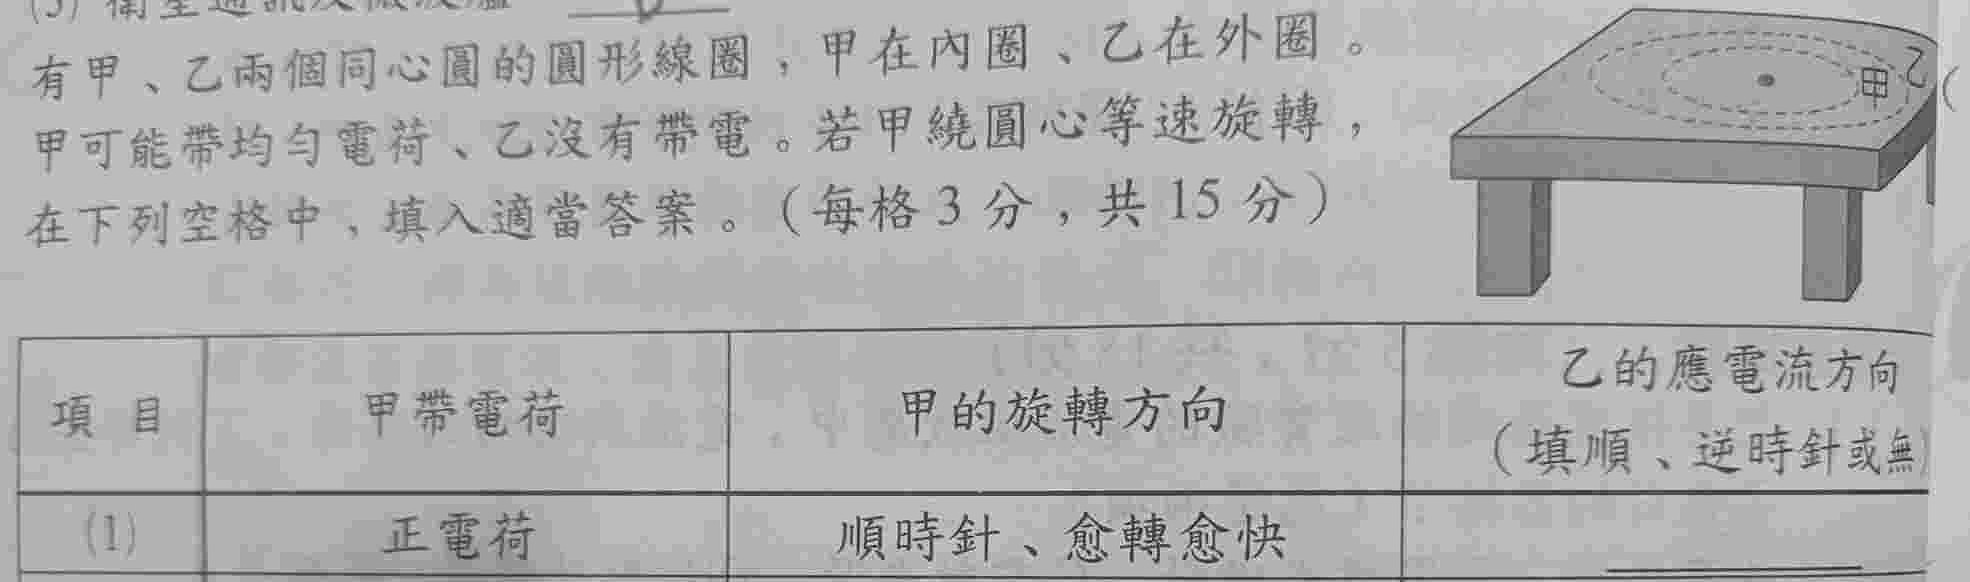 (3) 衛星通訊及微波爐 D
有甲、乙兩個同心圓的圓形線圈，甲在內圈、乙在外圈。
甲可能帶均勻電荷、乙沒有帶電。若甲繞圓心等速旋轉，
在下列空格中，填入適當答案。（每格3分，共15分）
乙
甲
項目 甲帶電荷 甲的旋轉方向 乙的應電流方向
（填順、逆時針或無）
(1) 正電荷 順時針、愈轉愈快